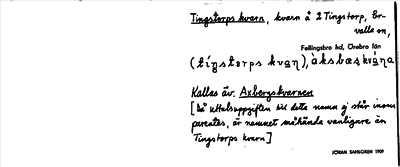 Tingstorps kvarn, kvarn å 2 Tingstorp, Er-
valla sn,
Fellingsbro hd, Örebro län
(tíŋstɔrps kvaṇ), àksbæskvá̀ṇa
Kallas äv. Axbergskvarnen
[Då uttalsuppgiften till detta namn ej står inom
parentes, är namnet måhända vanligare än
Tingstorps kvarn]
JÖRAN SAHLGREN 1909